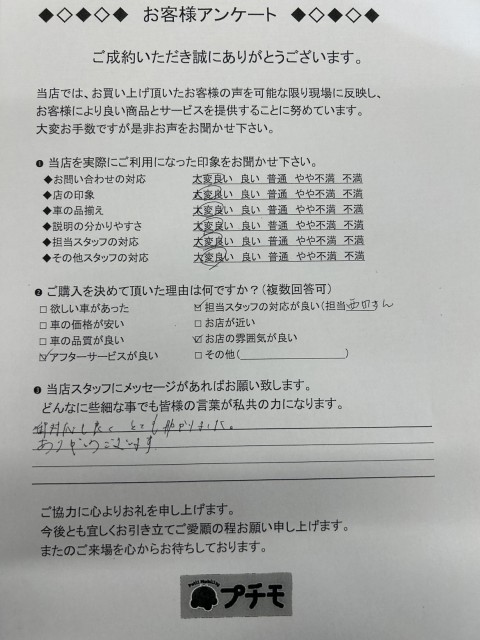 ◆◇◆◇◆ お客様アンケート ◆◇◆◇◆
ご成約いただき誠にありがとうございます。
当店では、お買い上げ頂いたお客様の声を可能な限り現場に反映し、
お客様により良い商品とサービスを提供することに努めています。
大変お手数ですが是非お声をお聞かせ下さい。
❶ 当店を実際にご利用になった印象をお聞かせ下さい。
◆お問い合わせの対応 大変良い 良い 普通 やや不満 不満
◆店の印象 大変良い 良い 普通 やや不満 不満
◆車の品揃え 大変良い 良い 普通 やや不満 不満
◆説明の分かりやすさ 大変良い 良い 普通 やや不満 不満
◆担当スタッフの対応 大変良い 良い 普通 やや不満 不満
◆その他スタッフの対応 大変良い 良い 普通 やや不満 不満
❷ ご購入を決めて頂いた理由は何ですか？(複数回答可)
□ 欲しい車があった ☑ 担当スタッフの対応が良い(担当 さん
□ 車の価格が安い □ お店が近い
□ 車の品質が良い ☑ お店の雰囲気が良い
☑ アフターサービスが良い □ その他( )
❸ 当店スタッフにメッセージがあればお願い致します。
どんなに些細な事でも皆様の言葉が私共の力になります。
とても助かりました。
ありがとうございます
ご協力に心よりお礼を申し上げます。
今後とも宜しくお引き立てご愛顧の程お願い申し上げます。
またのご来場を心からお待ちしております。
Petit Mobility
プチモ